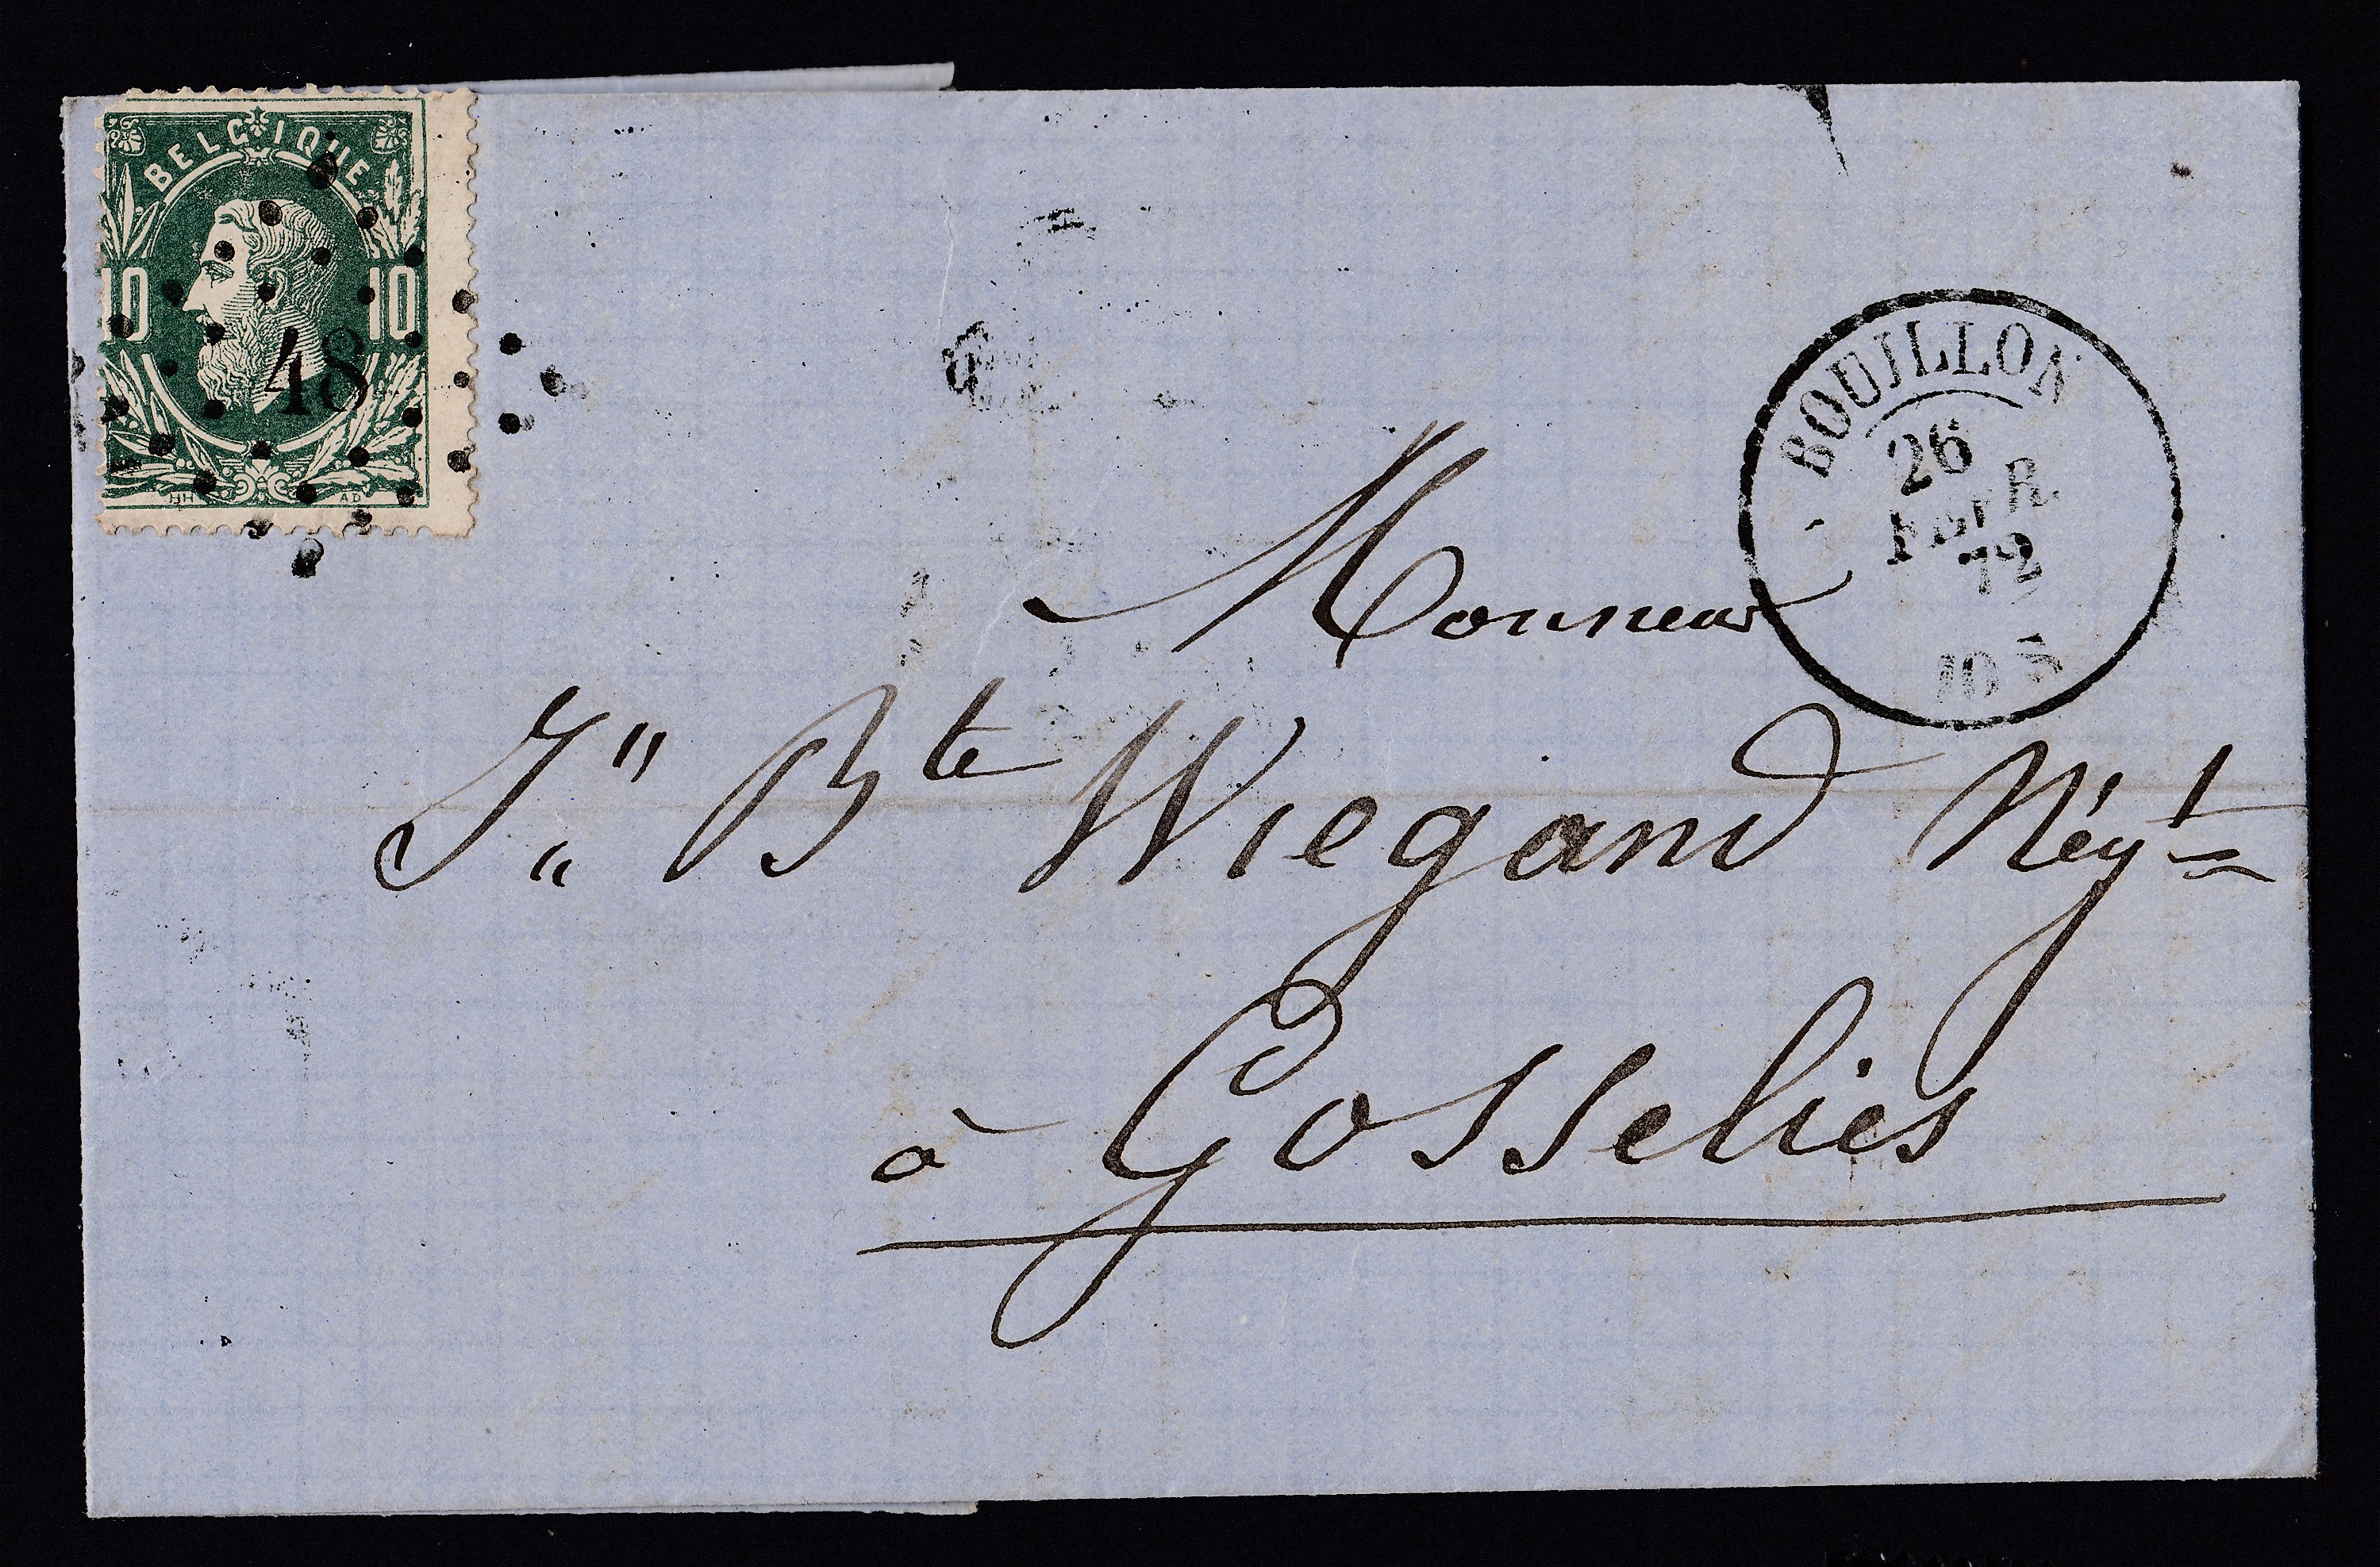 BELGIQUE
10 10
48
HH AD
BOUILLON
26
FEVR.
72
10 S
Monsieur
J„ Bte Wiegand Négt
à Gosselies